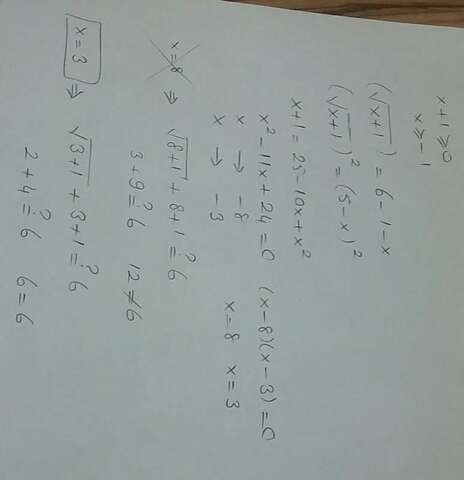 x+1≥0
x≥-1
(√x+1) = 6-1-x
(√x+1)² = (5-x)²
x+1 = 25-10x+x²
x²-11x+24=0 (x-8)(x-3)=0
x → -8
x → -3 x=8 x=3
x=8 ⇒ √8+1 + 8+1 ?= 6
3+9 ?= 6 12≠6
x=3 ⇒ √3+1 + 3+1 ?= 6
2+4 ?= 6 6=6